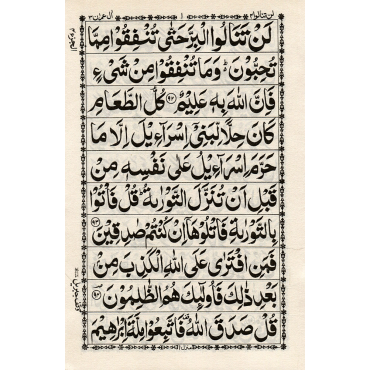 لن تنالوا ٤ ١ اٰل عمرٰن ٣
لَنْ تَنَالُوا الْبِرَّ حَتّٰى تُنْفِقُوْا مِمَّا
تُحِبُّوْنَ ؕ وَمَا تُنْفِقُوْا مِنْ شَىْءٍ
فَاِنَّ اللّٰهَ بِهٖ عَلِيْمٌ ﴿۹۲﴾ كُلُّ الطَّعَامِ
كَانَ حِلًّا لِّبَنِىْۤ اِسْرَآءِيْلَ اِلَّا مَا
حَرَّمَ اِسْرَآءِيْلُ عَلٰى نَفْسِهٖ مِنْ
قَبْلِ اَنْ تُنَزَّلَ التَّوْرٰىةُ ؕ قُلْ فَاْتُوْا
بِالتَّوْرٰىةِ فَاتْلُوْهَاۤ اِنْ كُنْتُمْ صٰدِقِيْنَ ﴿۹۳﴾
فَمَنِ افْتَرٰى عَلَى اللّٰهِ الْكَذِبَ مِنْۢ
بَعْدِ ذٰلِكَ فَاُولٰٓئِكَ هُمُ الظّٰلِمُوْنَ ﴿۹۴﴾
قُلْ صَدَقَ اللّٰهُ فَاتَّبِعُوْا مِلَّةَ اِبْرٰهِيْمَ